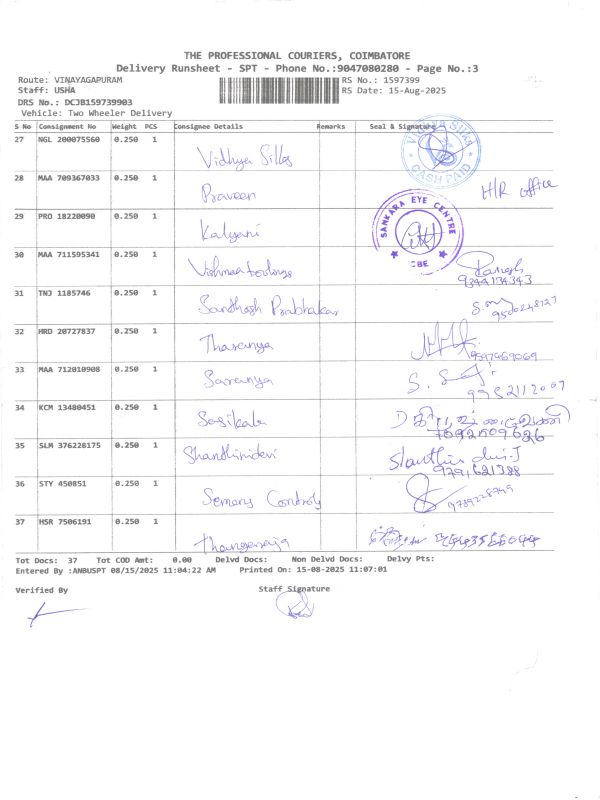 THE PROFESSIONAL COURIERS, COIMBATORE
Delivery Runsheet - SPT - Phone No.:9047080280 - Page No.:3
Route: VINAYAGAPURAM RS No.: 1597399
Staff: USHA RS Date: 15-Aug-2025
DRS No.: DCJB159739903
Vehicle: Two Wheeler Delivery
S No Consignment No Weight PCS Consignee Details Remarks Seal & Signature
27 NGL 200075560 0.250 1 Vidhya Silks CASH PAID
28 MAA 709367033 0.250 1 Praveen H/R office
29 PRO 18220090 0.250 1 Kalyani SANKARA EYE CENTRE CBE
30 MAA 711595341 0.250 1 9344134343
31 TNJ 1185746 0.250 1 Santhosh Prabhakar
32 HRD 20727837 0.250 1 Tharanya 9597969069
33 MAA 712010908 0.250 1 Saranya
34 KCM 13480451 0.250 1 Sasikala
35 SLM 376228175 0.250 1 Shanthinidevi 9791621388
36 STY 450851 0.250 1
37 HSR 7506191 0.250 1 Thangaraja
Tot Docs: 37 Tot COD Amt: 0.00 Delvd Docs: Non Delvd Docs: Delvy Pts:
Entered By :ANBUSPT 08/15/2025 11:04:22 AM Printed On: 15-08-2025 11:07:01
Verified By Staff Signature